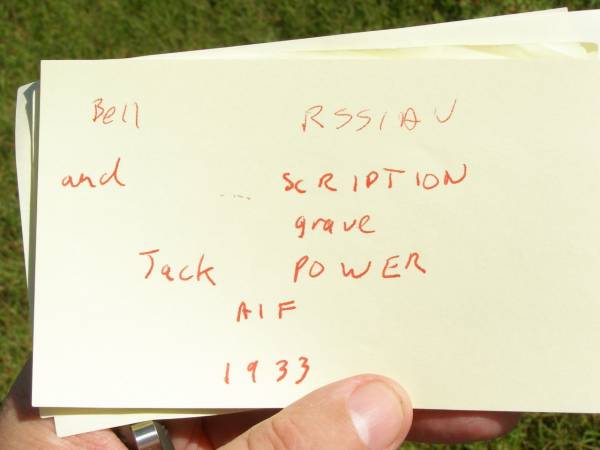 Bell RSSIAV
and ... SCRIPTION
grave
Jack POWER
AIF
1933